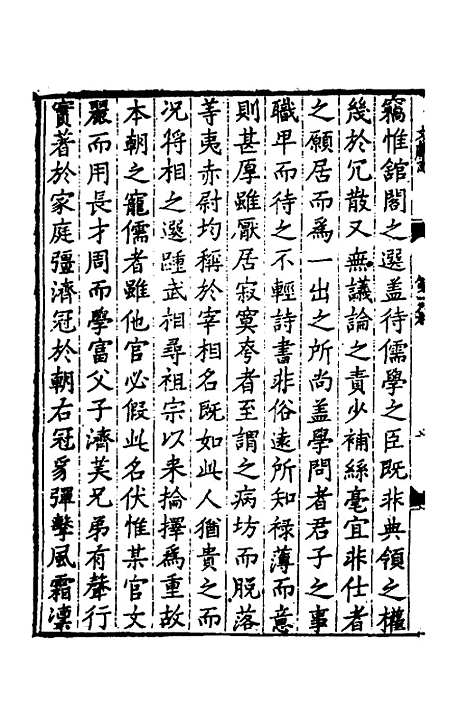 竊惟舘閣之選盖待儒學之臣既非典領之權
幾於冗散又無議論之責少補絲毫宜非仕者
之願居而為一出之所尚盖學問者君子之事
職卑而待之不輕詩書非俗逺所知禄薄而意
則甚厚雖厭居寂寞夸者至謂之病坊而脱落
等夷赤尉均稱於宰相名既如此人猶貴之而
况将相之選踵武相尋祖宗以來掄擇為重故
本朝之寵儒者雖他官必假此名伏惟某官文
嚴而用長才周而學富父子濟美兄弟有聲行
實著於家庭彊濟冠於朝右冠豸彈擊風霜凜